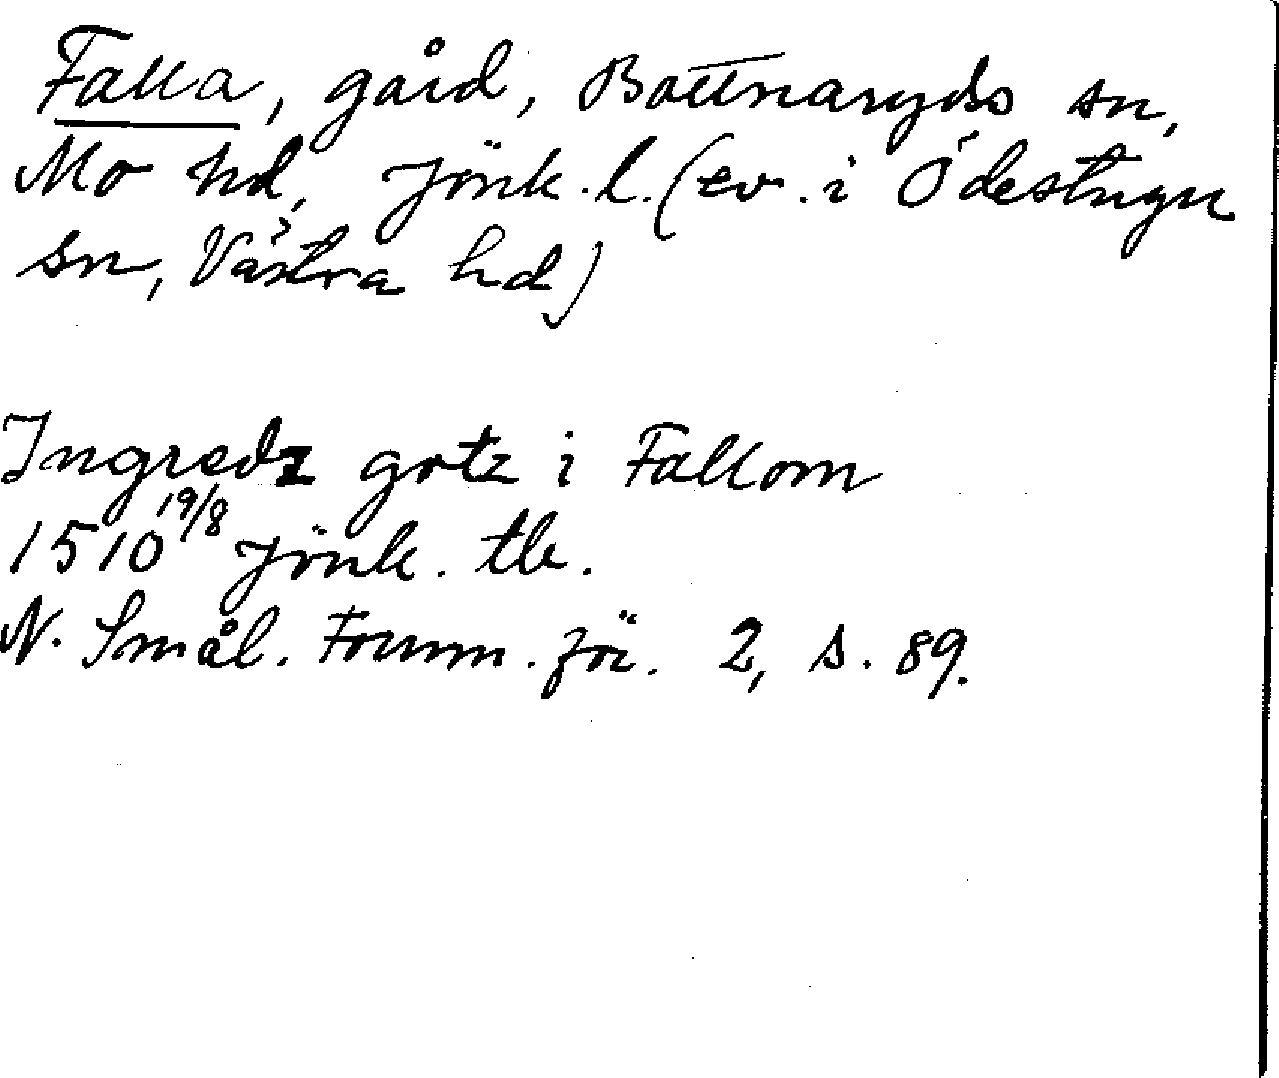 Falla, gård, Bottnaryds sn,
Mo hd, Jönk. l. (ev. i Ödestugu
sn, Västra hd)
Ingredz gotz i Fallom
1510 19/8 Jönk. tb.
N. Smål. Fornm. för. 2, s. 89.